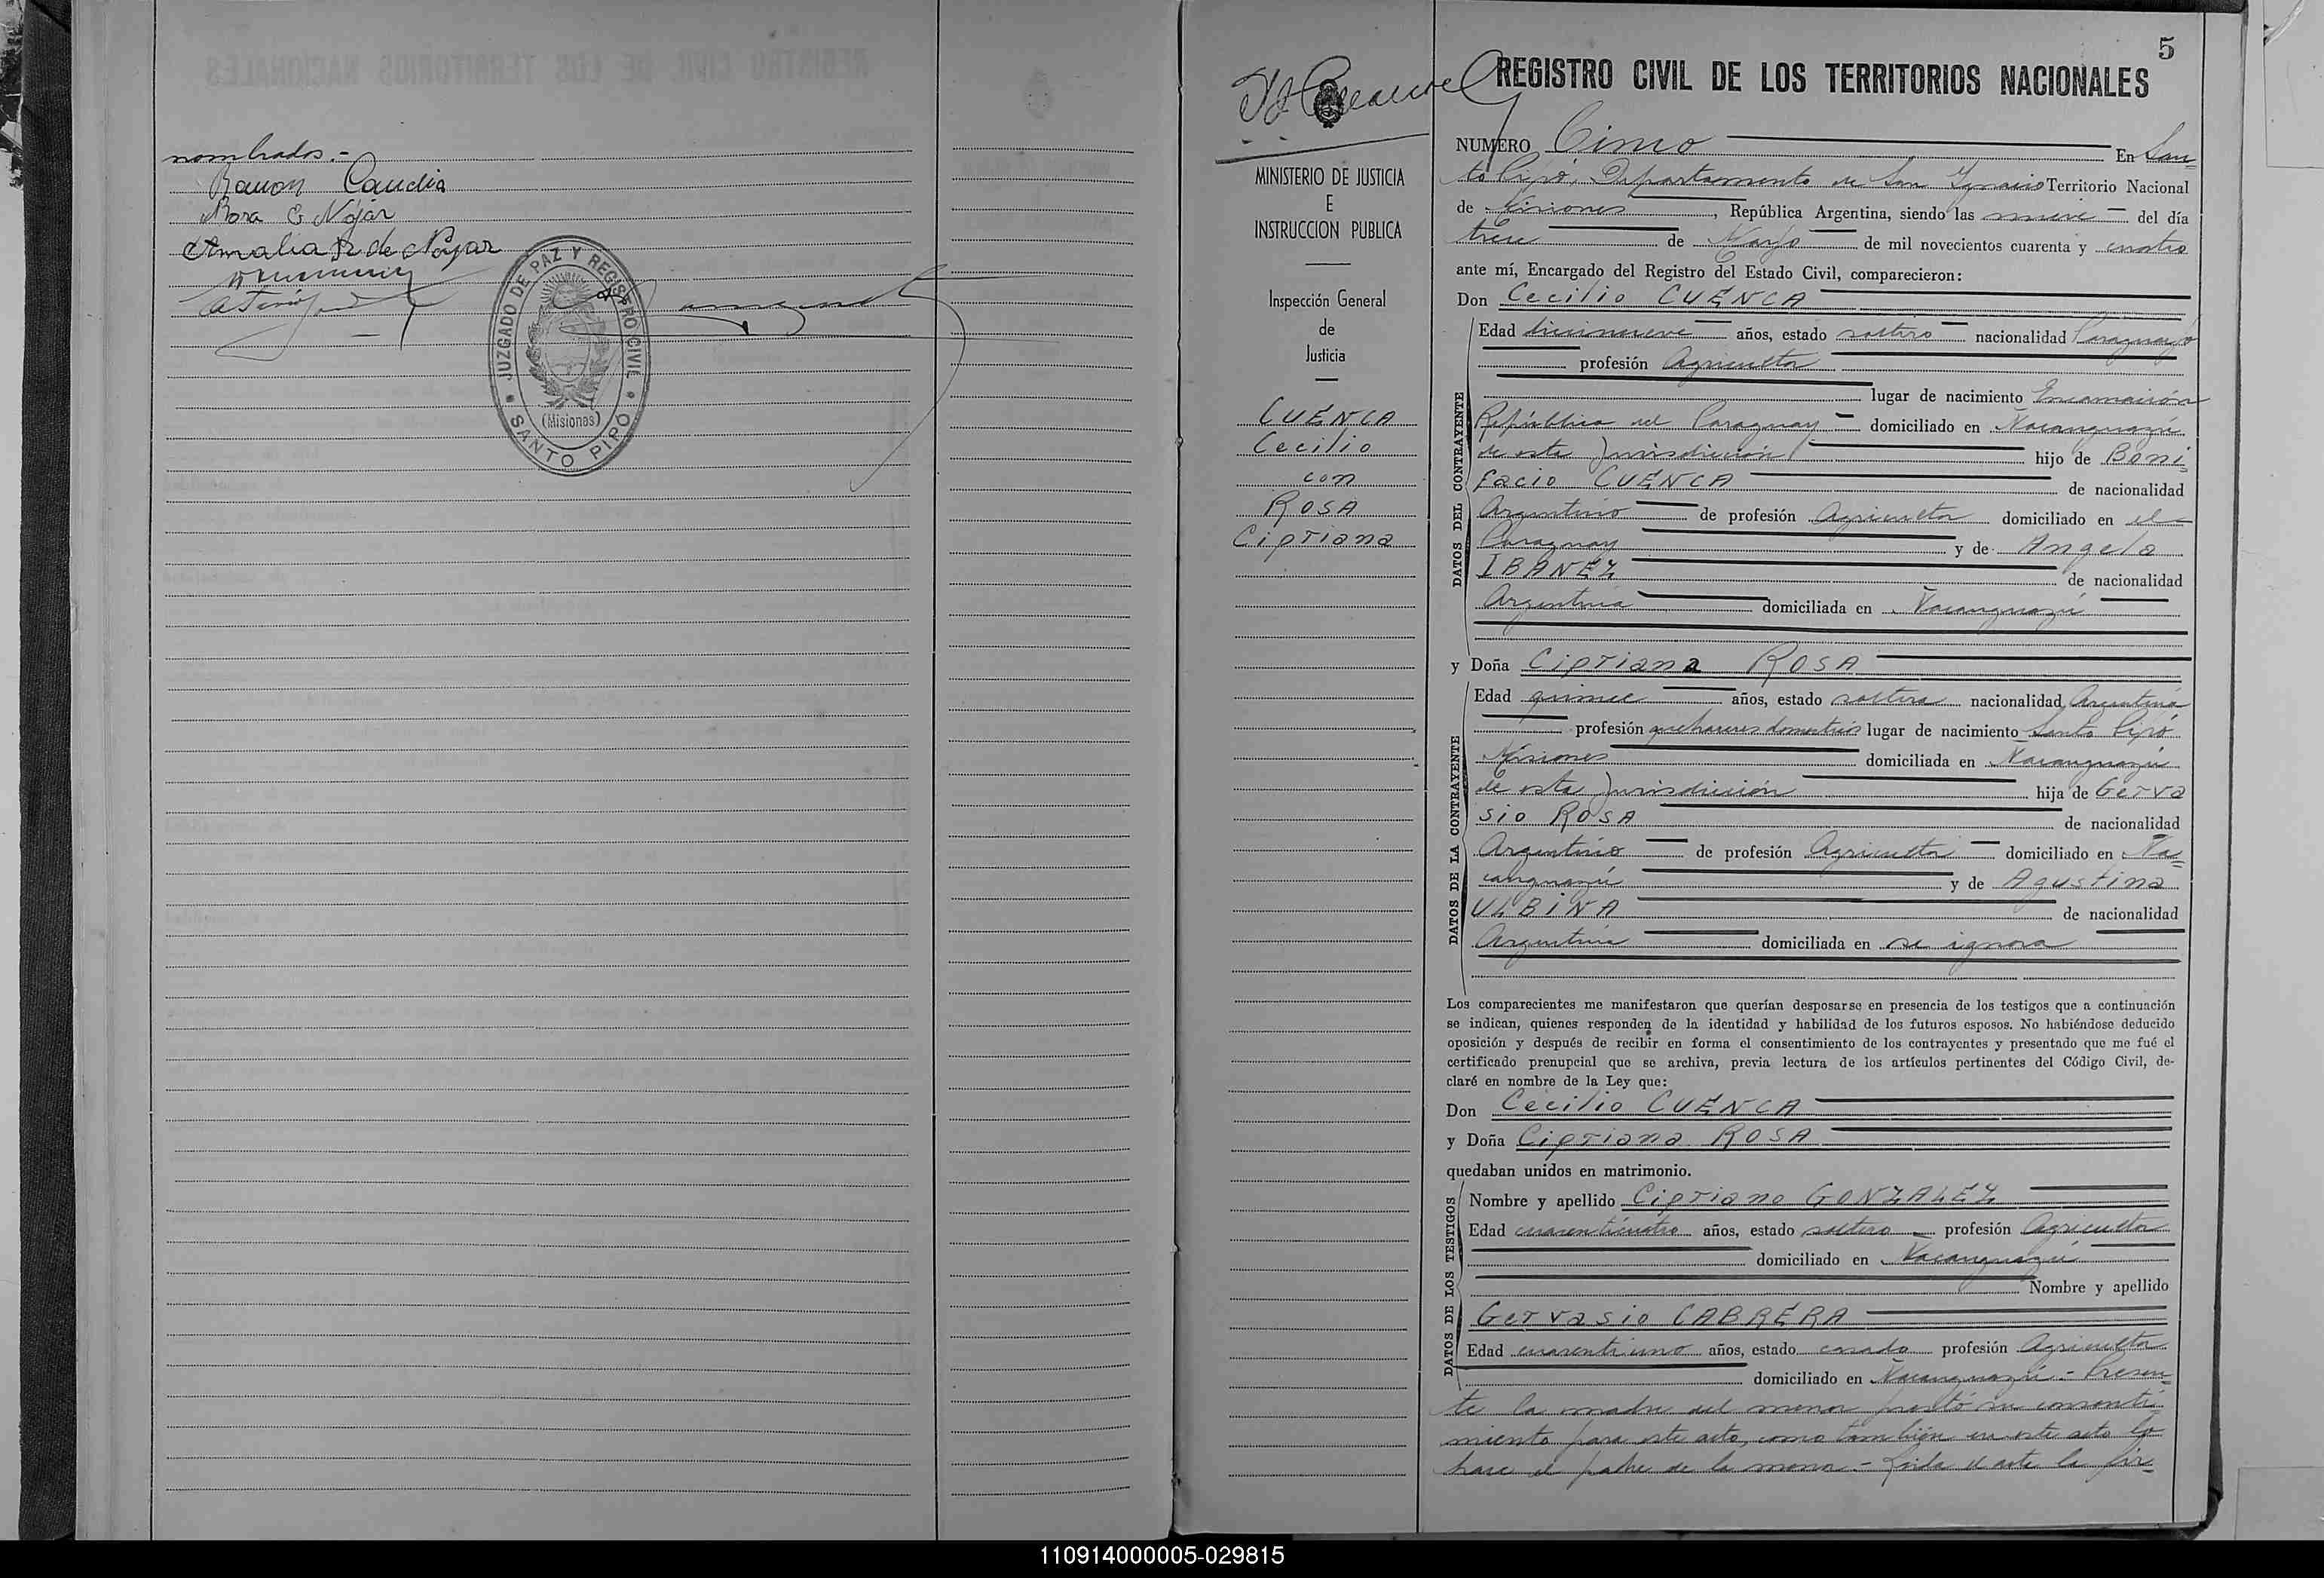 nombrados.-
Ramon Candia
Nora E Nójar
Amalia R de Nojar
JUZGADO DE PAZ Y REGISTRO CIVIL
(Misiones)
SANTO PIPÓ
5
REGISTRO CIVIL DE LOS TERRITORIOS NACIONALES
MINISTERIO DE JUSTICIA
E
INSTRUCCION PUBLICA
Inspección General
de
Justicia
CUENCA
Cecilio
con
ROSA
Cipriana
NUMERO Cinco En San-
to Pipó, Departamento de San Ignacio Territorio Nacional
de Misiones, República Argentina, siendo las nueve del día
trece de Marzo de mil novecientos cuarenta y cuatro
ante mí, Encargado del Registro del Estado Civil, comparecieron:
Don Cecilio CUENCA
DATOS DEL CONTRAYENTE
Edad diecinueve años, estado soltero nacionalidad Paraguayo
profesión Agricultor
lugar de nacimiento Encarnación
República del Paraguay domiciliado en Ñacanguazú
de esta Jurisdicción hijo de Boni-
facio CUENCA de nacionalidad
Argentino de profesión Agricultor domiciliado en el
Paraguay y de Angela
IBAÑEZ de nacionalidad
Argentina domiciliada en Ñacanguazú
y Doña Cipriana ROSA
DATOS DE LA CONTRAYENTE
Edad quince años, estado soltera nacionalidad Argentina
profesión quehaceres domesticos lugar de nacimiento Santo Pipó
Misiones domiciliada en Ñacanguazú
de esta Jurisdicción hija de Gerva
sio ROSA de nacionalidad
Argentino de profesión Agricultor domiciliado en Ña-
canguazú y de Agustina
ULBINA de nacionalidad
Argentina domiciliada en se ignora
Los comparecientes me manifestaron que querían desposarse en presencia de los testigos que a continuación
se indican, quienes responden de la identidad y habilidad de los futuros esposos. No habiéndose deducido
oposición y después de recibir en forma el consentimiento de los contrayentes y presentado que me fué el
certificado prenupcial que se archiva, previa lectura de los artículos pertinentes del Código Civil, de-
claré en nombre de la Ley que:
Don Cecilio CUENCA
y Doña Cipriana ROSA
quedaban unidos en matrimonio.
DATOS DE LOS TESTIGOS
Nombre y apellido Cipriano GONZALEZ
Edad cuarenticuatro años, estado soltero profesión Agricultor
domiciliado en Ñacanguazú
Nombre y apellido
Gervasio CABRERA
Edad cuarentiuno años, estado casado profesión Agricultor
domiciliado en Ñacanguazú.- Presen-
te la madre del menor prestó su consenti-
miento para este acto, como tambien en este acto lo
hace el padre de la menor.- Leida el acta la fir-
110914000005-029815